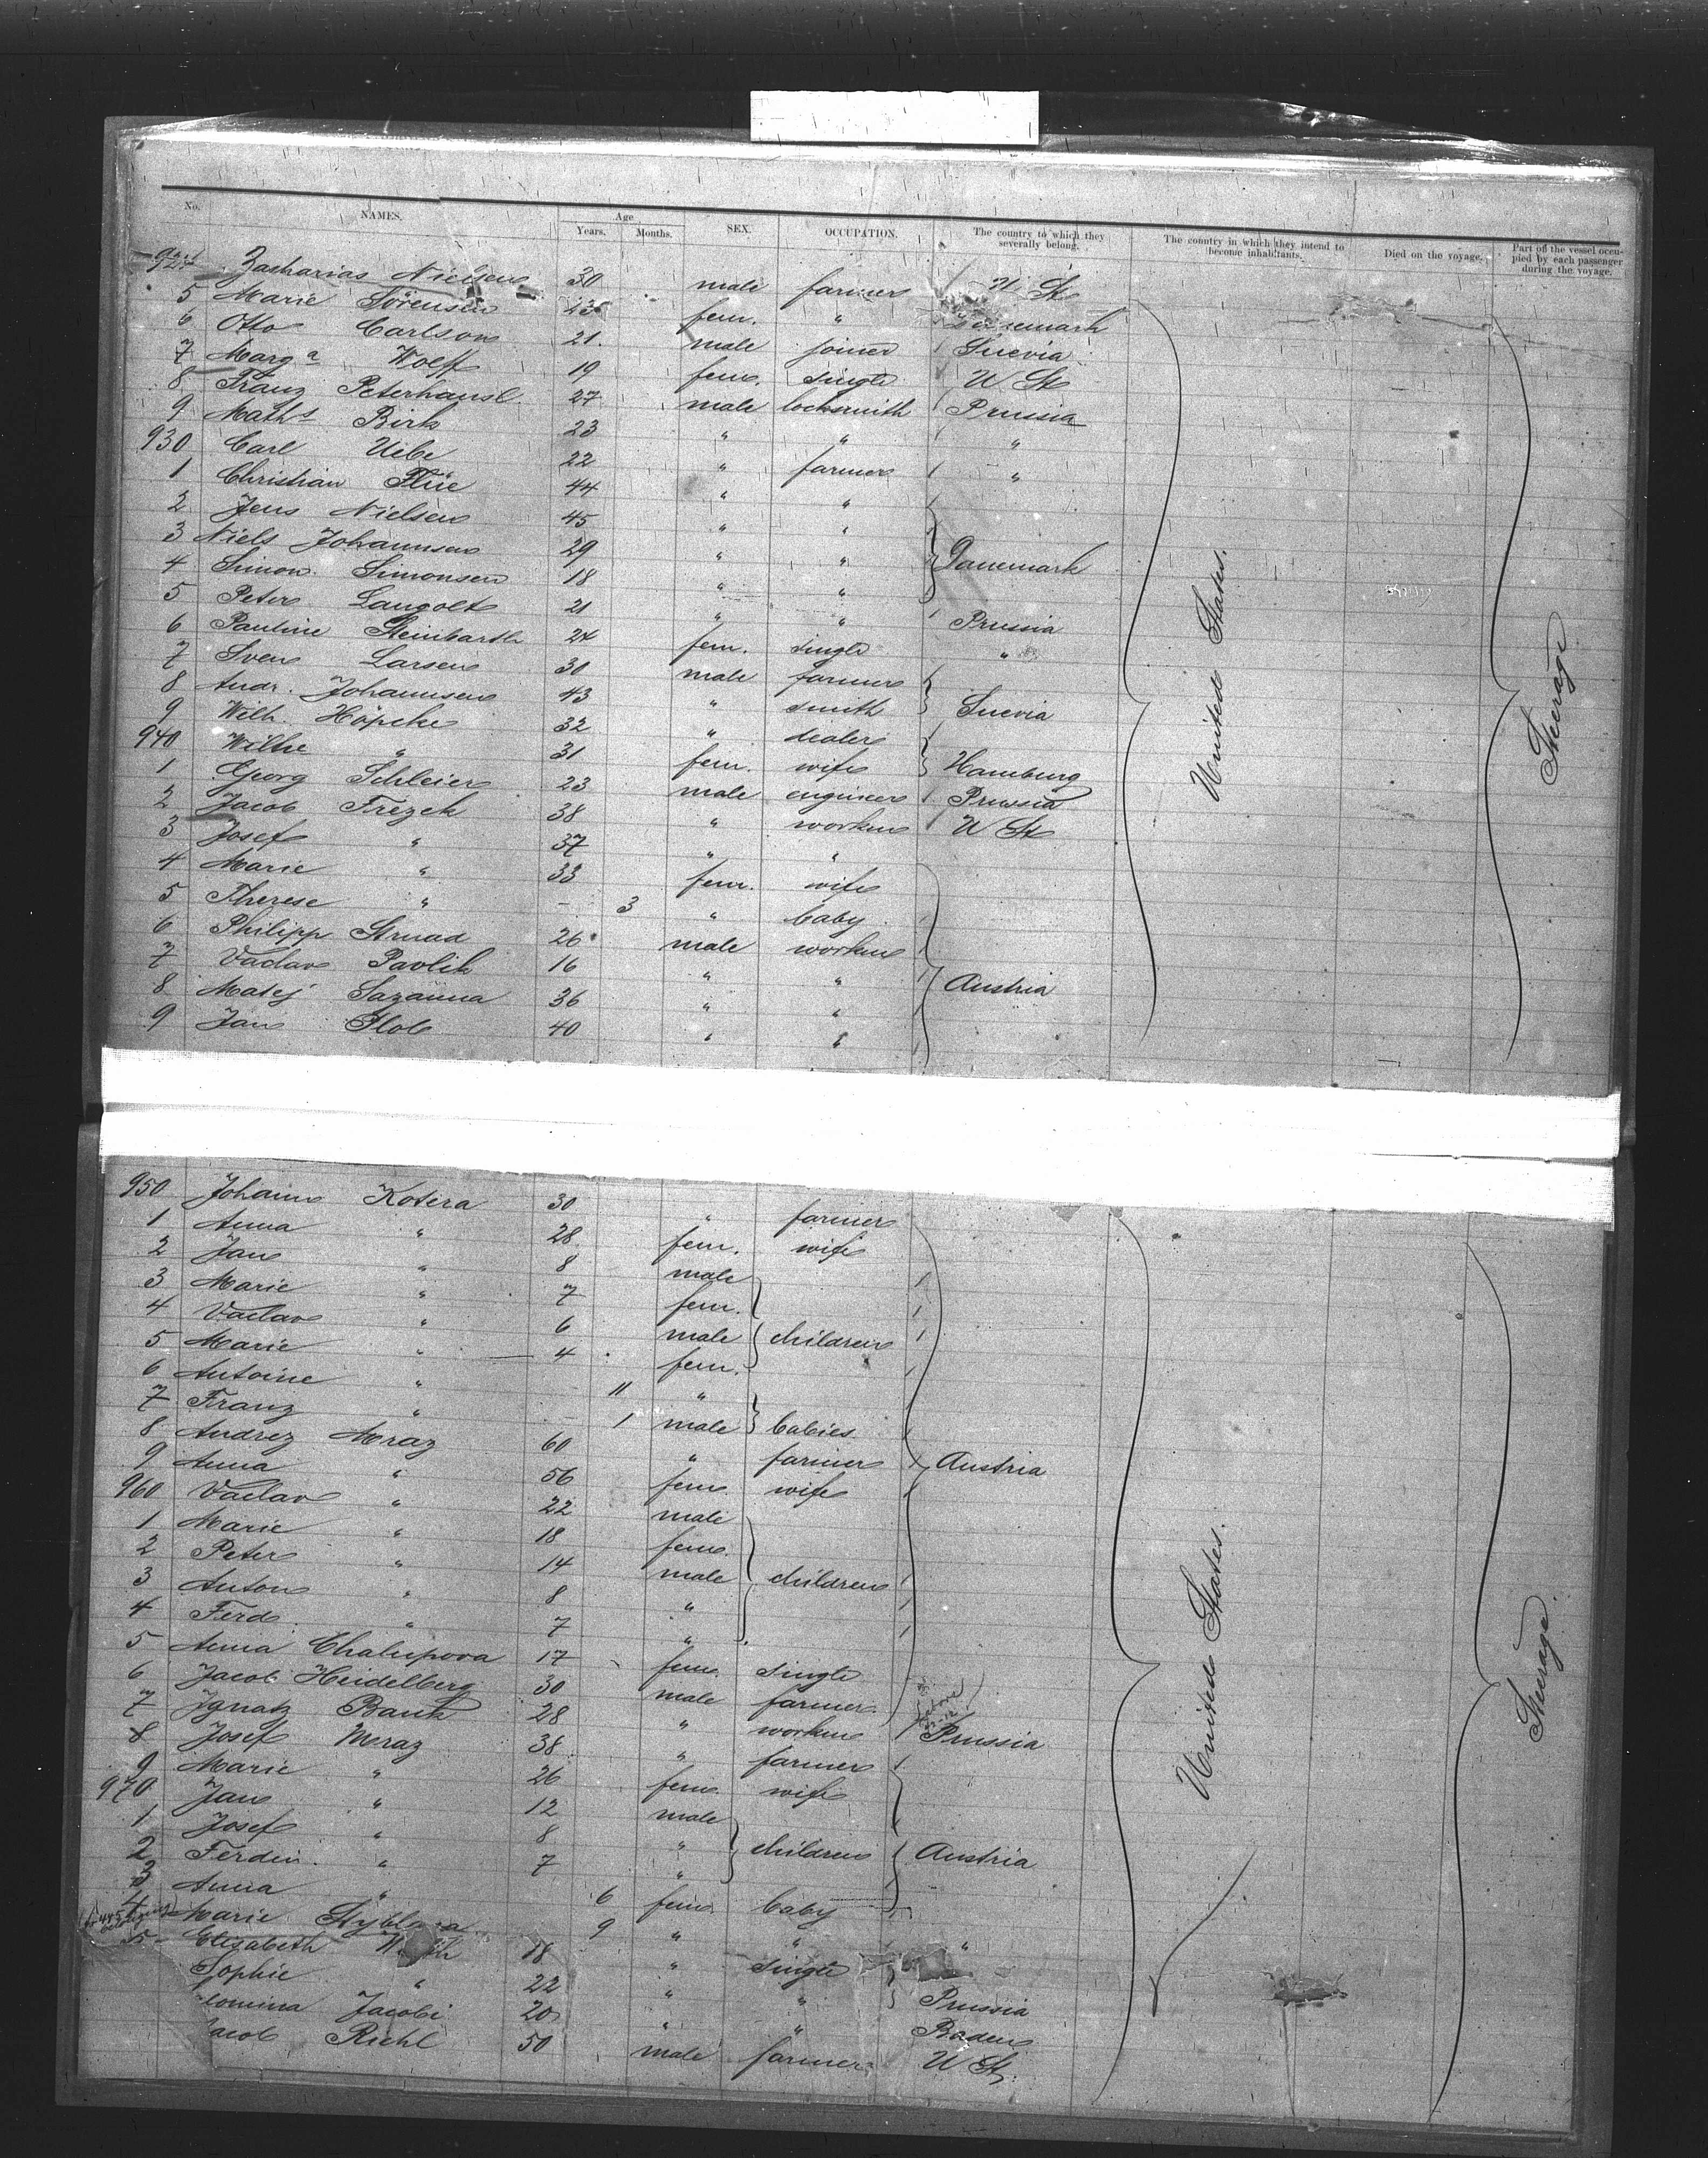 No. NAMES. Age Years. Months. SEX. OCCUPATION. The country to which they severally belong. The country in which they intend to become inhabitants. Died on the voyage. Part of the vessel occupied by each passenger during the voyage.
924 Zacharias Nielsen 30 male farmer U St
5 Marie Sörensen 23 fem. "
6 Otto Carlson 21. male joiner Suevia
7 Marg a Wolff 19 fem. single U St
8 Franz Peterhansl 27 male locksmith Prussia
9 Maths Birk 23 " " "
930 Carl Uebe 22 " farmer "
1 Christian Flüe 44 " "
2 Jens Nielsen 45 " "
3 Niels Johannsen 29 " " Danemark
4 Simon Simonsen 18 " "
5 Peter Langolt 21 " " Prussia
6 Pauline Steinbarth 24 fem. single "
7 Sven Larsen 30 male farmer
8 Andr. Johannsen 43 " smith Suevia
9 Wilh. Höpcke 32 " dealer
940 Wilhe " 31 fem. wife Hamburg
1 Georg Schleier 23 male engineer Prussia
2 Jacob Frezek 38 " workm U St
3 Josef " 37 " "
4 Marie " 33 fem. wife
5 Therese " - 3 " baby
6 Philipp Strnad 26 male workm
7 Vaclav Pavlik 16 " " Austria
8 Matej Sazanna 36 " "
9 Jan Flob 40 " "
United States.
Steerage
950 Johann Kotera 30 " farmer
1 Anna " 28 fem. wife
2 Jan " 8 male
3 Marie " 7 fem.
4 Vaclav " 6 male children
5 Marie " 4 fem.
6 Antoine " 11 "
7 Franz " - 1 male babies
8 Andrez Mraz 60 " farmer Austria
9 Anna " 56 fem. wife
960 Vaclav " 22 male
1 Marie " 18 fem.
2 Peter " 14 male children
3 Anton " 8 "
4 Ferd. " 7 "
5 Anna Chalupova 17 fem. single
6 Jacob Heidelberg 30 male farmer
7 Ignatz Bank 28 " workm Prussia
8 Josef Mraz 38 " farmer
9 Marie " 26 fem. wife
970 Jan " 12 male
1 Josef " 8 " children Austria
2 Ferdin. " 7 "
3 Anna " 6 fem. baby
4 Marie 9 " " "
5 Elisabeth 18 " single
Sophie " 22 " " Prussia
Jacobi 20 " " Baden
Riehl 50 male farmer U St.
United States.
Steerage.